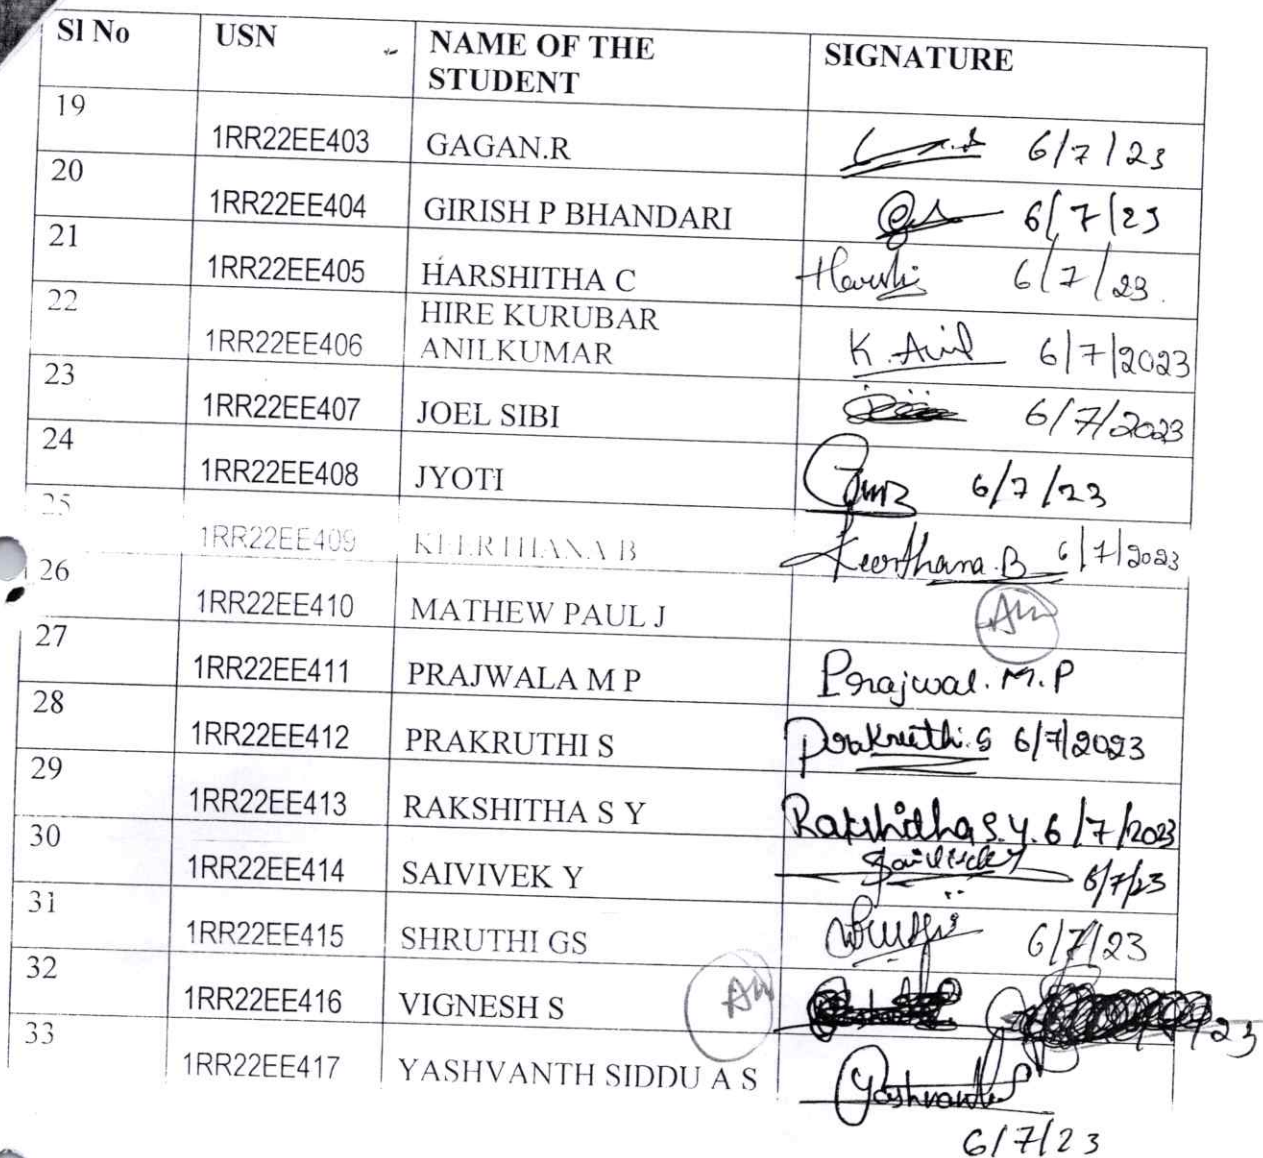 Sl No USN NAME OF THE STUDENT SIGNATURE
19 1RR22EE403 GAGAN.R 6/7/23
20 1RR22EE404 GIRISH P BHANDARI 6/7/23
21 1RR22EE405 HARSHITHA C Harshi 6/7/23.
22 1RR22EE406 HIRE KURUBAR ANILKUMAR K.Anil 6/7/2023
23 1RR22EE407 JOEL SIBI 6/7/2023
24 1RR22EE408 JYOTI 6/7/23
25 1RR22EE409 KEERTHANA B Keerthana.B 6/7/2023
26 1RR22EE410 MATHEW PAUL J
27 1RR22EE411 PRAJWALA M P Prajwal.M.P
28 1RR22EE412 PRAKRUTHI S Prakruthi.S 6/7/2023
29 1RR22EE413 RAKSHITHA S Y Rakshitha S.Y. 6/7/2023
30 1RR22EE414 SAIVIVEK Y 6/7/23
31 1RR22EE415 SHRUTHI GS 6/7/23
32 1RR22EE416 VIGNESH S /23
33 1RR22EE417 YASHVANTH SIDDU A S Yashvanth S
6/7/23